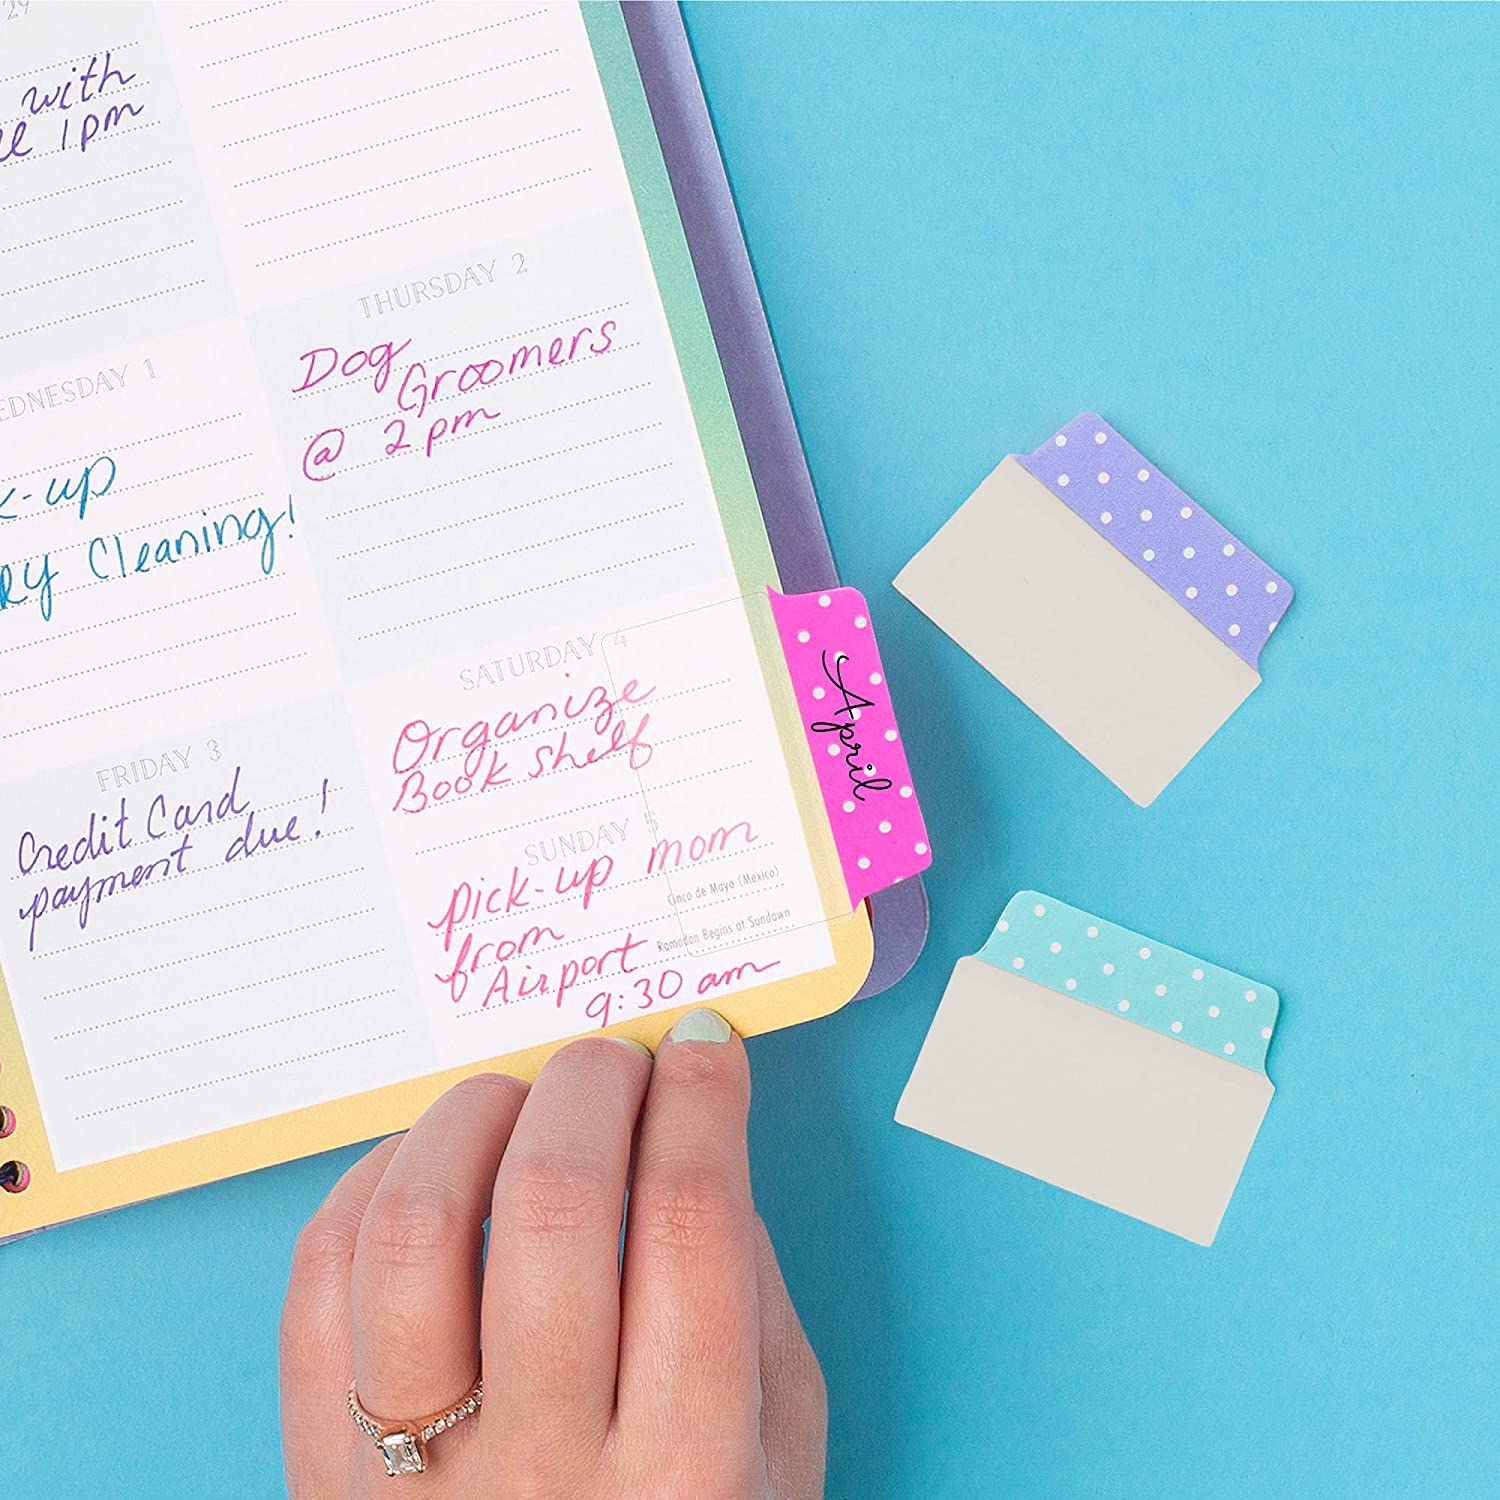 29
with
1pm
THURSDAY 2
Dog
Groomers
@ 2pm
WEDNESDAY 1
-up
Cleaning!
SATURDAY 4
Organize
Book Shelf
FRIDAY 3
Credit Card
payment due!
SUNDAY 5
pick-up mom
Cinco de Mayo (Mexico)
from
Ramadan Begins at Sundown
Airport
9:30 am
April